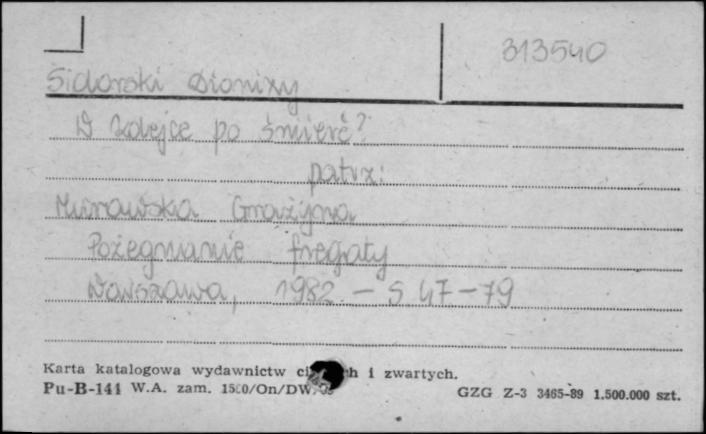 313540
Sidorski Dionizy
W kolejce po śmierć?
patrz:
Murawska Grażyna
Pożegnanie fregaty
Warszawa, 1982. - S. 47-79
Karta katalogowa wydawnictw i zwartych.
Pu-B-141 W.A. zam.
GZG Z-3 3465-89 1.500.000 szt.